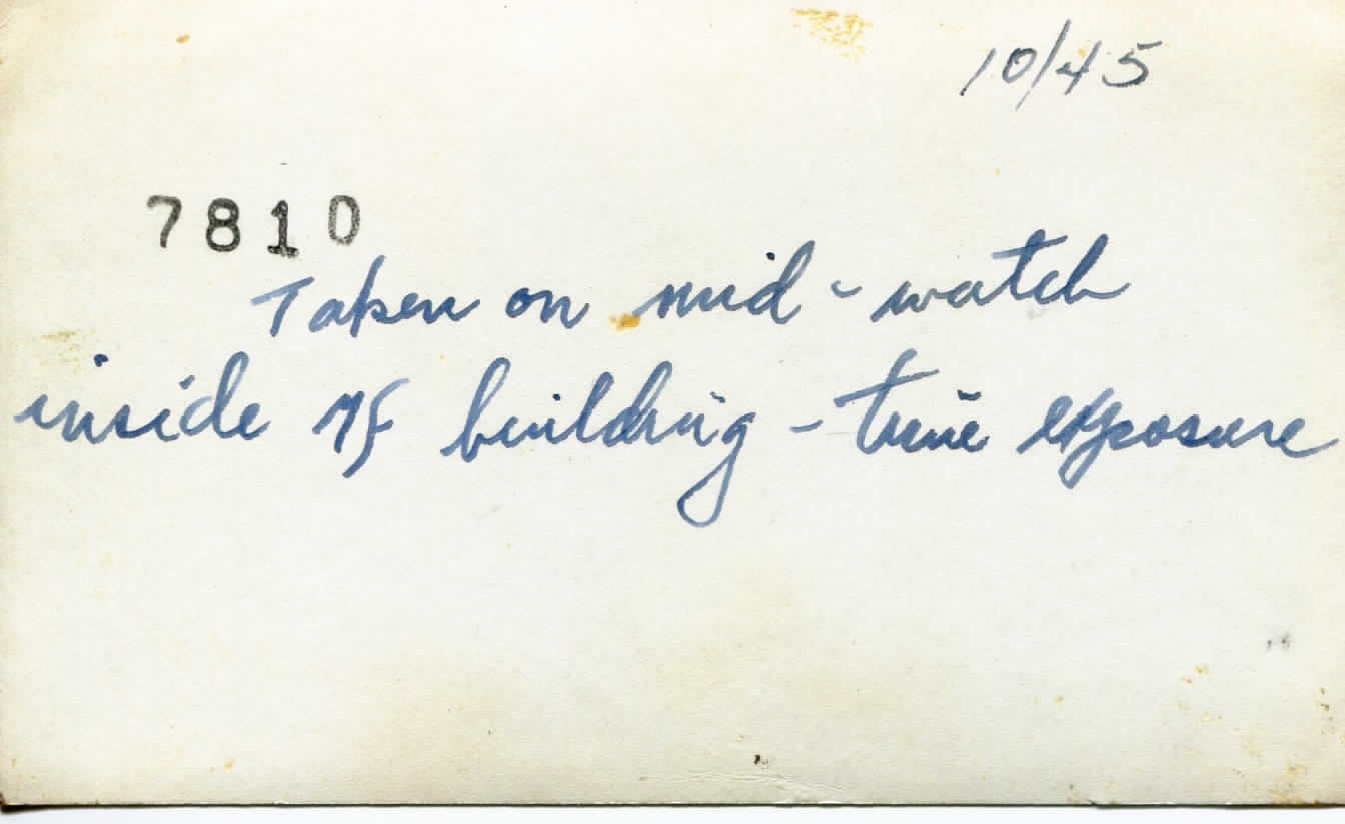 10/45
7810
Taken on mid-watch
inside of building - time exposure